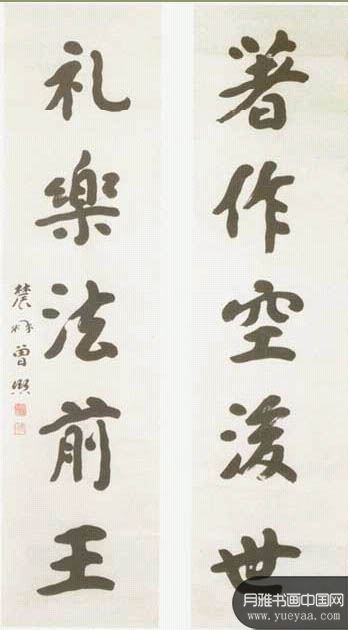 著作空後世
礼樂法前王
農髯曾熙
月雅书画中国网
www.yueyaa.com